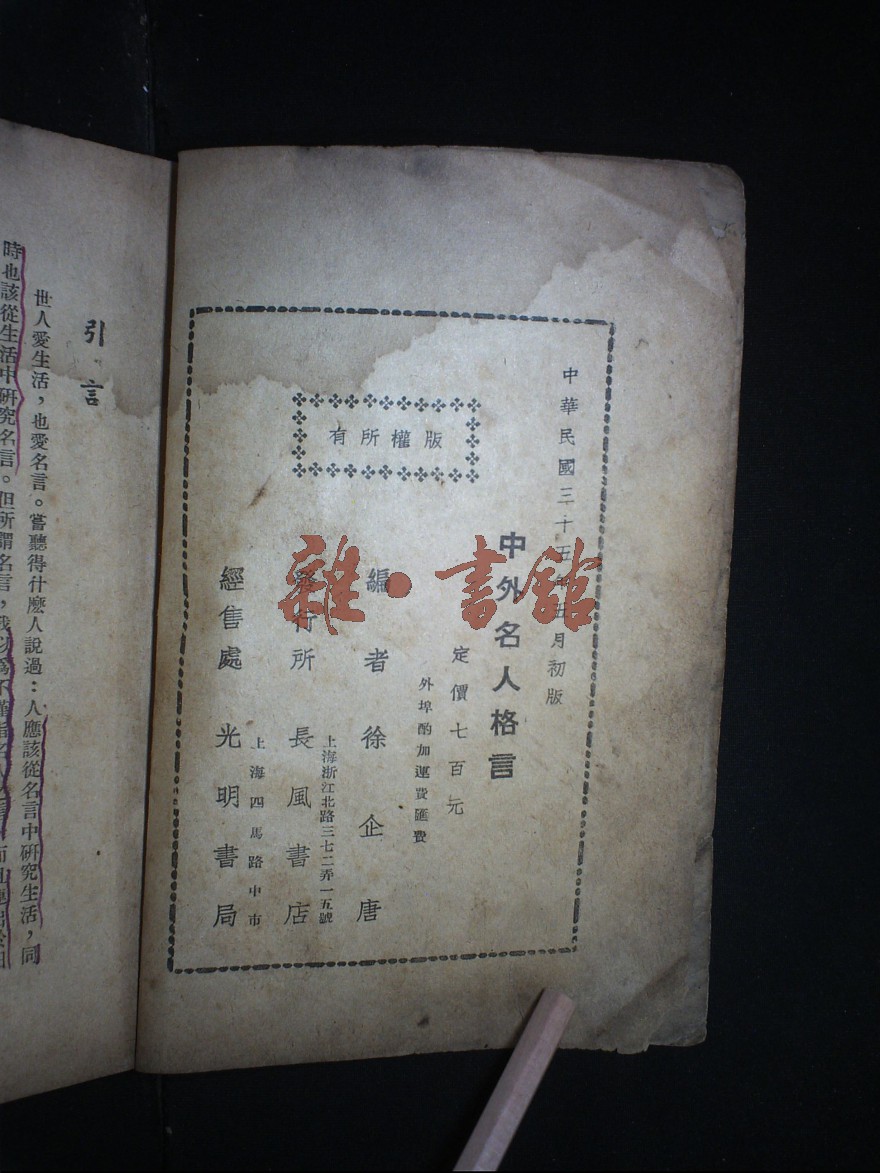 中華民國三十五年五月初版
中外名人格言
定價七百元
外埠酌加運費匯費
編者徐企唐
發行所長風書店
上海浙江北路三七二弄一五號
經售處光明書局
上海四馬路中市
有所權版
雜·書館
引言
世人愛生活，也愛名言。嘗聽得什麽人說過：人應該從名言中研究生活，同
時也該從生活中研究名言。但所謂名言，我以爲不僅指名人